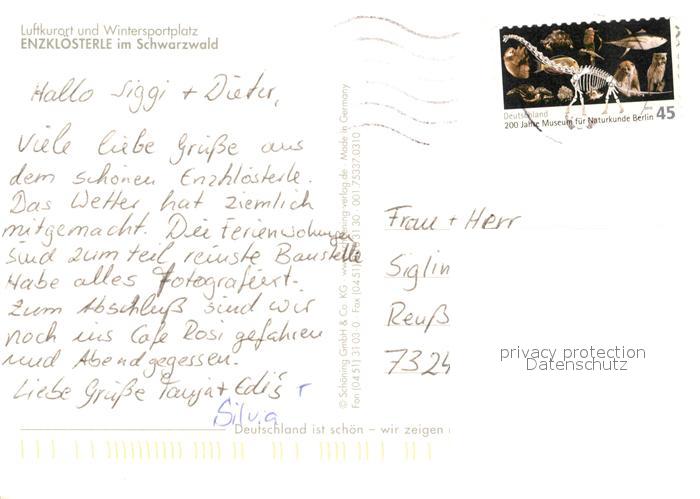 Luftkurort und Wintersportplatz
ENZKLÖSTERLE im Schwarzwald
Hallo Siggi + Dieter,
Viele liebe Grüße aus
dem schönen Enzklösterle.
Das Wetter hat ziemlich
mitgemacht. Die Ferienwohnungen
sind zum teil reinste Baustelle
Habe alles Fotografiert.
Zum Abschluß sind wir
noch ins Cafe Rosi gefahren
und Abendgegessen.
Liebe Grüße Tanja + Edis +
Silvia
© Schöning GmbH & Co. KG · www.schoening-verlag.de · Made in Germany
Fon (0451) 31 03 0 · Fax (0451) 31 30 · 001 75337 0310
Deutschland
200 Jahre Museum für Naturkunde Berlin 45
Frau + Herr
Siglin
Reuß
7324
privacy protection
Datenschutz
Deutschland ist schön – wir zeigen